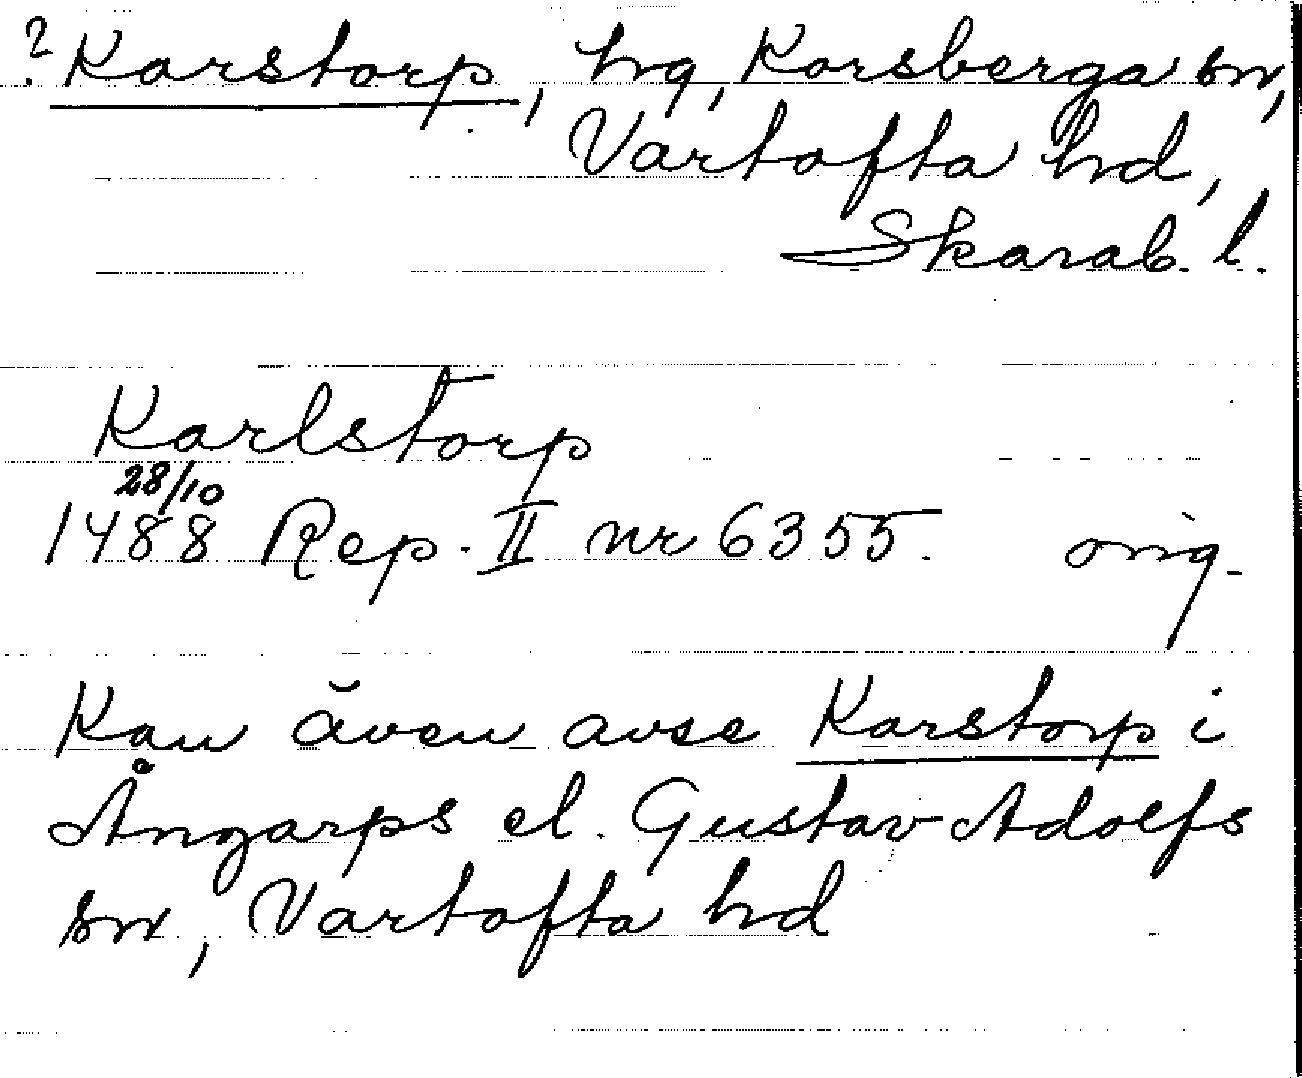 ? Karstorp, hg, Korsberga sn,
Vartofta hd,
Skarab. l.
Karlstorp
28/10
1488 Rep. II nr 6355. orig.
Kan även avse Karstorp i
Ångarps el. Gustav Adolfs
sn, Vartofta hd